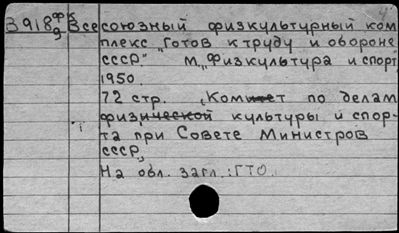 В918 фк Всесоюзный физкультурный ком
9 плекс „Готов к труду и обороне
СССР." М., „Физкультура и спорт,"
1950.
72 стр. (Комитет по делам
физической культуры и спор-
та при Совете Министров
СССР)
На обл. загл.: ГТО.